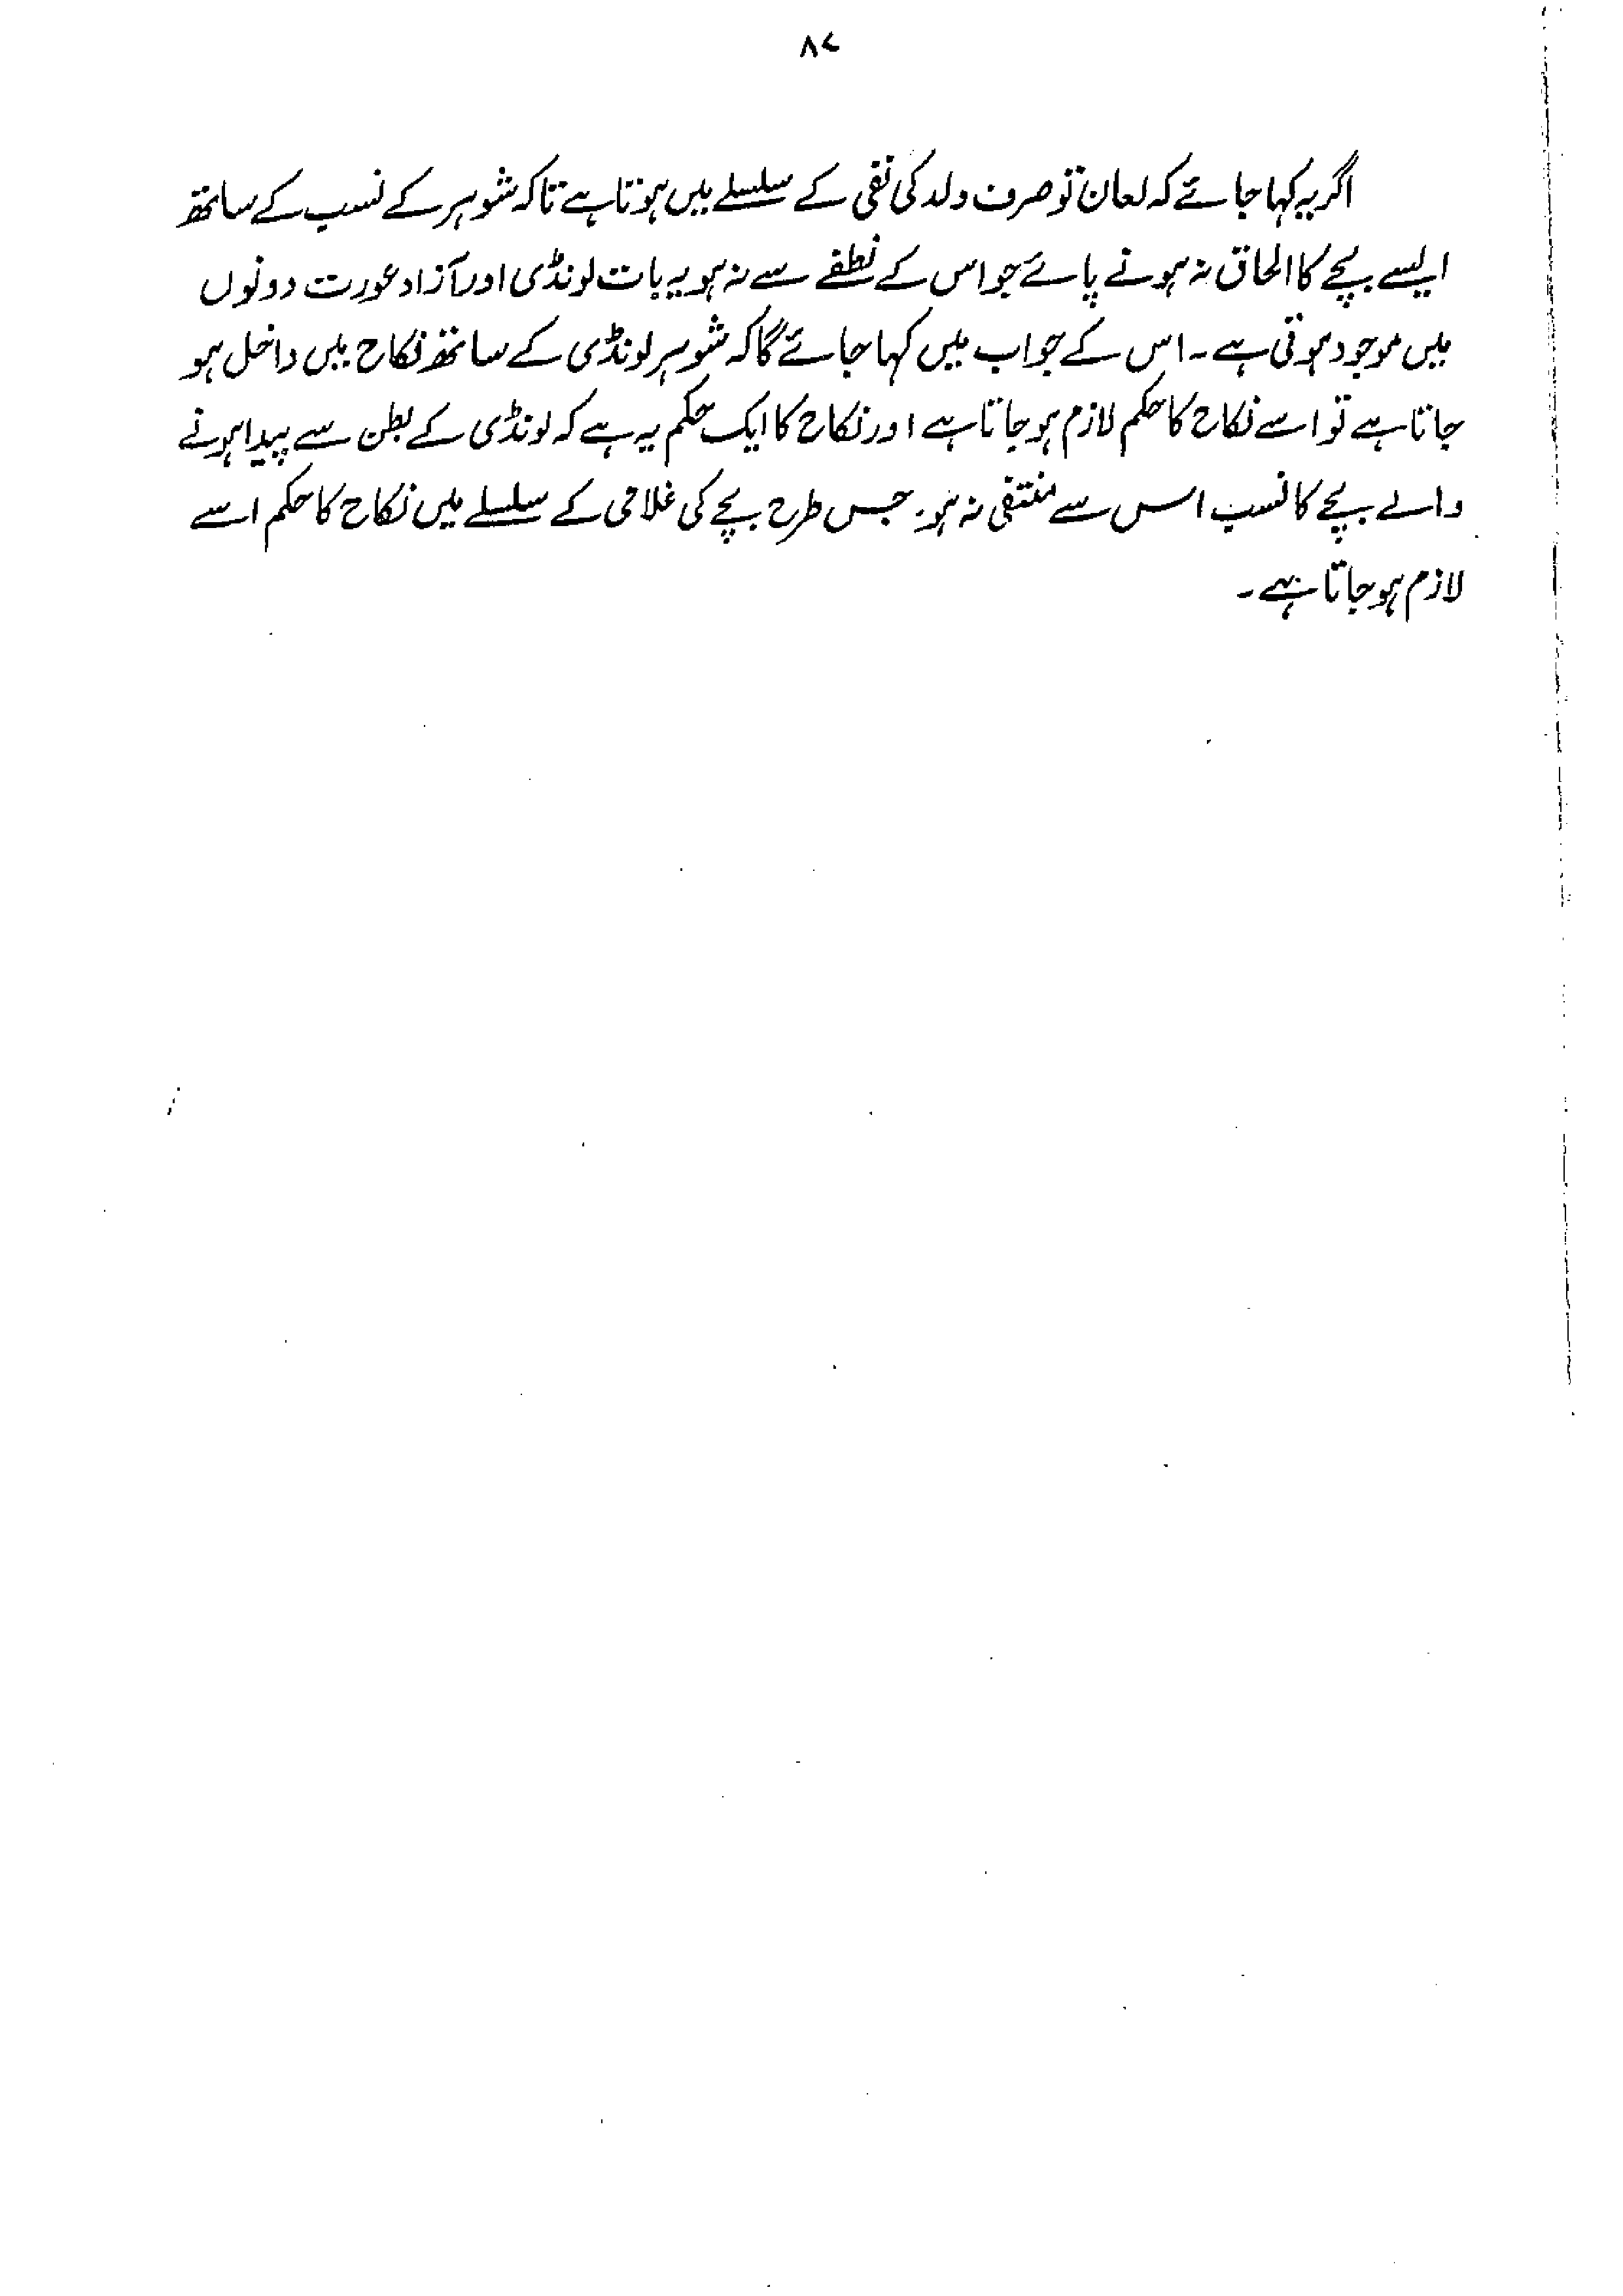 ۸۷
اگر یہ کہا جائے کہ لعان تو صرف ولد کی نفی کے سلسلے میں ہوتا ہے تاکہ شوہر کے نسب کے ساتھ
ایسے بچے کا الحاق نہ ہونے پائے جو اس کے نطفے سے نہ ہو یہ بات لونڈی اور آزاد عورت دونوں
میں موجود ہوتی ہے۔ اس کے جواب میں کہا جائے گا کہ شوہر لونڈی کے ساتھ نکاح میں داخل ہو
جاتا ہے تو اسے نکاح کا حکم لازم ہو جاتا ہے اور نکاح کا ایک حکم یہ ہے کہ لونڈی کے بطن سے پیدا ہونے
والے بچے کا نسب اس سے منتفی نہ ہو۔ جس طرح بچے کی غلامی کے سلسلے میں نکاح کا حکم اسے
لازم ہو جاتا ہے۔